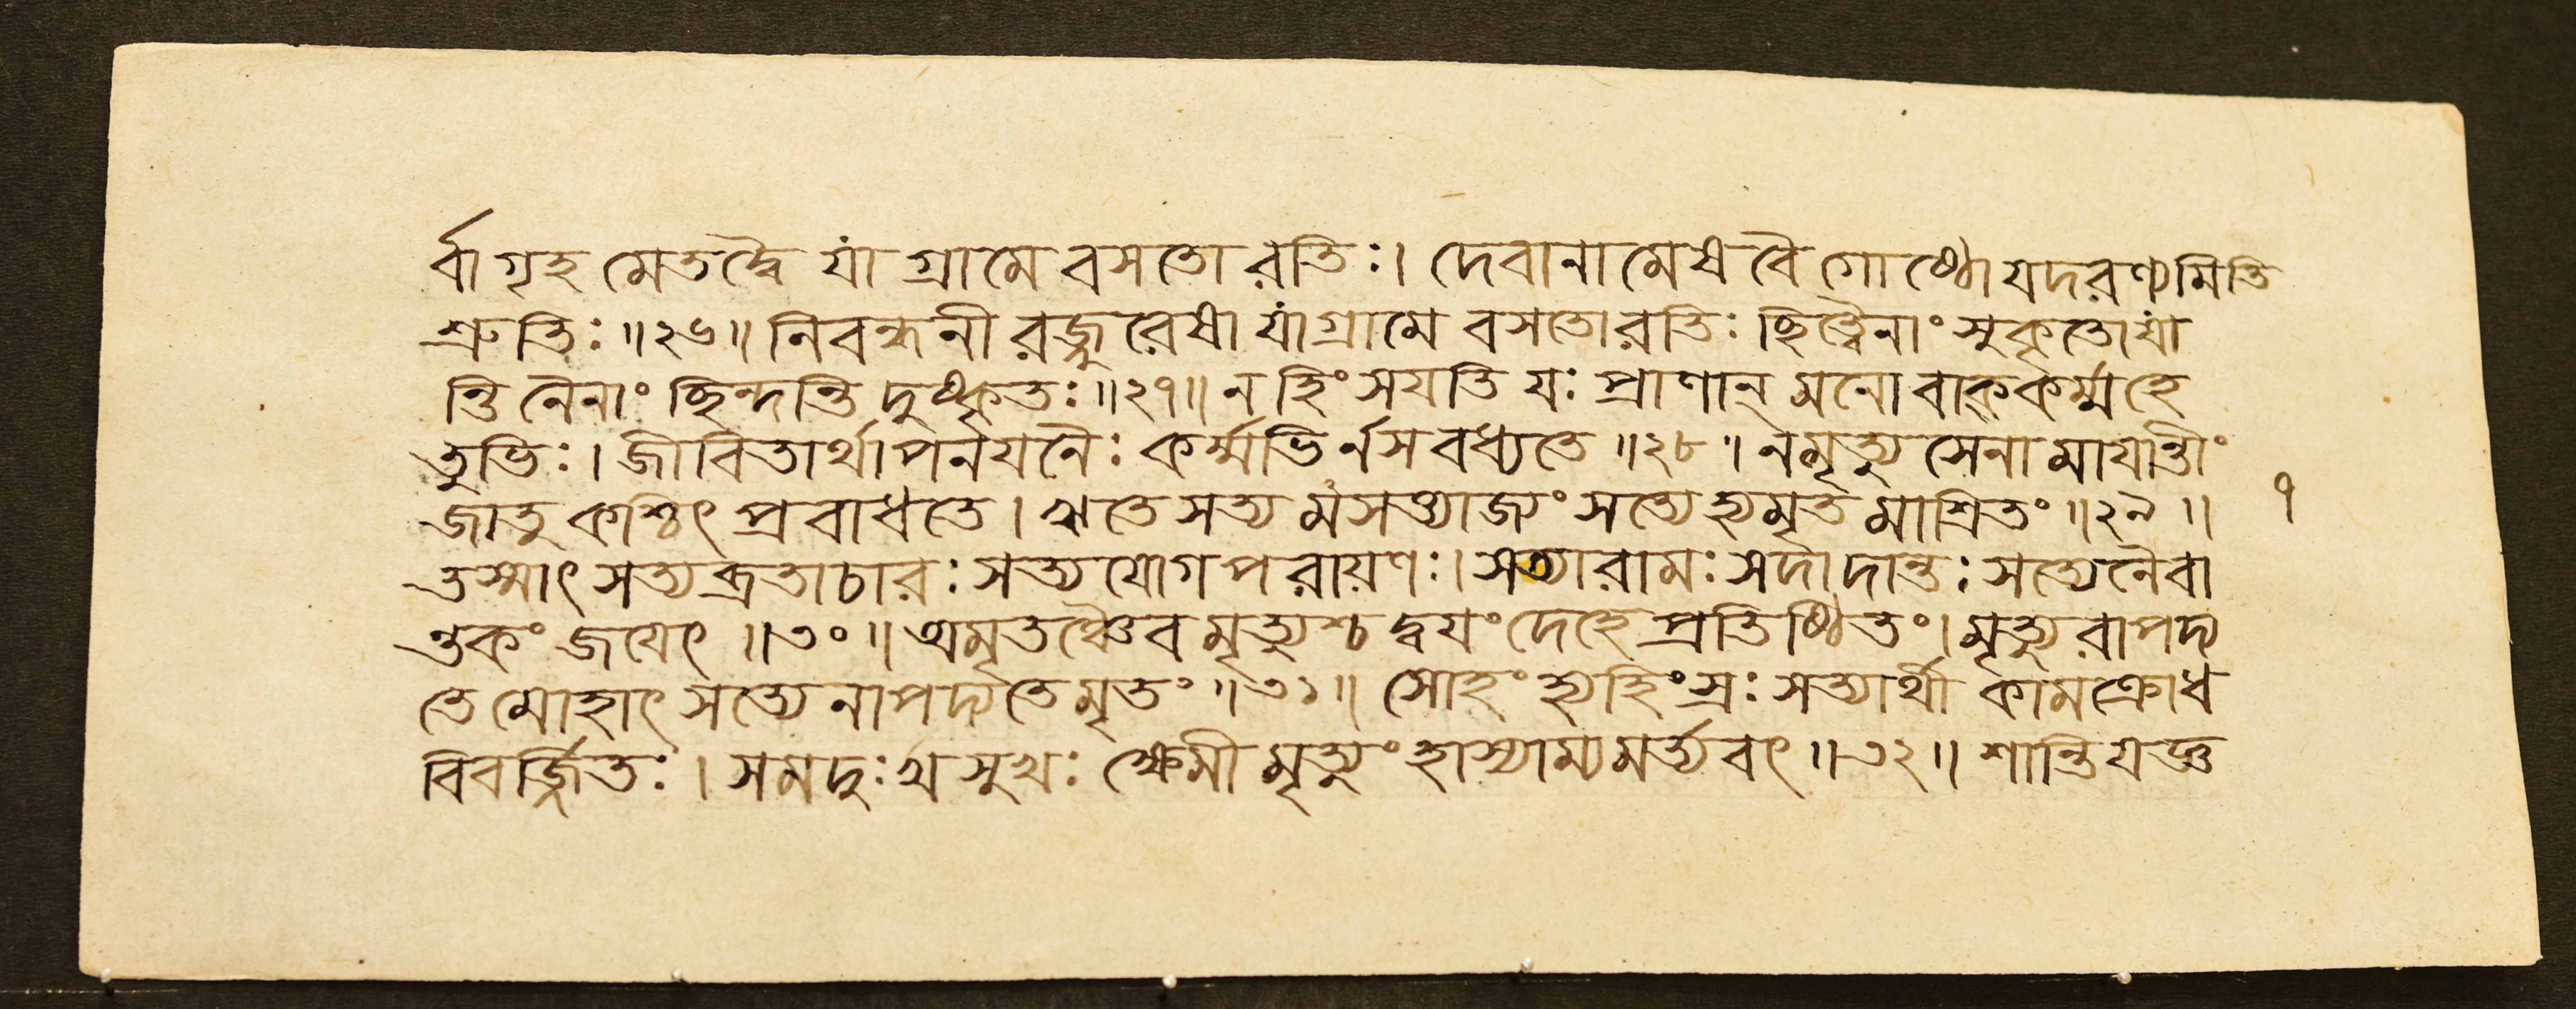 র্বা গৃহ মেতদ্বৈ যা গ্রামে বসতো রতিঃ। দেবানামেষ বৈ গোষ্ঠো যদরণ্যমিতি
শ্রুতিঃ ॥২৬॥ নিবন্ধনী রজ্জুরেষা যা গ্রামে বসতো রতিঃ ছিত্ত্বৈনাং সুকৃতো যা
ন্তি নৈনাং ছিন্দন্তি দুষ্কৃতঃ ॥২৭॥ ন হিংসযতি যঃ প্রাণান্ মনোবাক্কর্ম্মহে
তুভিঃ। জীবিতার্থাপনযনৈঃ কর্ম্মভির্ন স বধ্যতে ॥২৮॥ ন মৃত্যুসেনামাযান্তীং
জাতু কশ্চিৎ প্রবাধতে। ঋতে সত্যমসত্ত্যাজ্যং সত্যে হ্যমৃতমাশ্রিতং ॥২৯॥
৭
তস্মাৎ সত্যব্রতাচারঃ সত্যযোগপরায়ণঃ। সত্যারামঃ সদা দান্তঃ সত্যেনৈবা
ন্তকং জযেৎ ॥৩০॥ অমৃতঞ্চৈব মৃত্যুশ্চ দ্বযং দেহে প্রতিষ্ঠিতং। মৃত্যুরাপদ্য
তে মোহাৎ সত্যেনাপদ্যতেমৃতং ॥৩১॥ সোহং হ্যহিংস্রঃ সত্যার্থী কামক্রোধ
বিবর্জ্জিতঃ। সমদুঃখসুখঃ ক্ষেমী মৃত্যুং হাস্যাম্যমর্ত্যবৎ ॥৩২॥ শান্তিযজ্ঞ